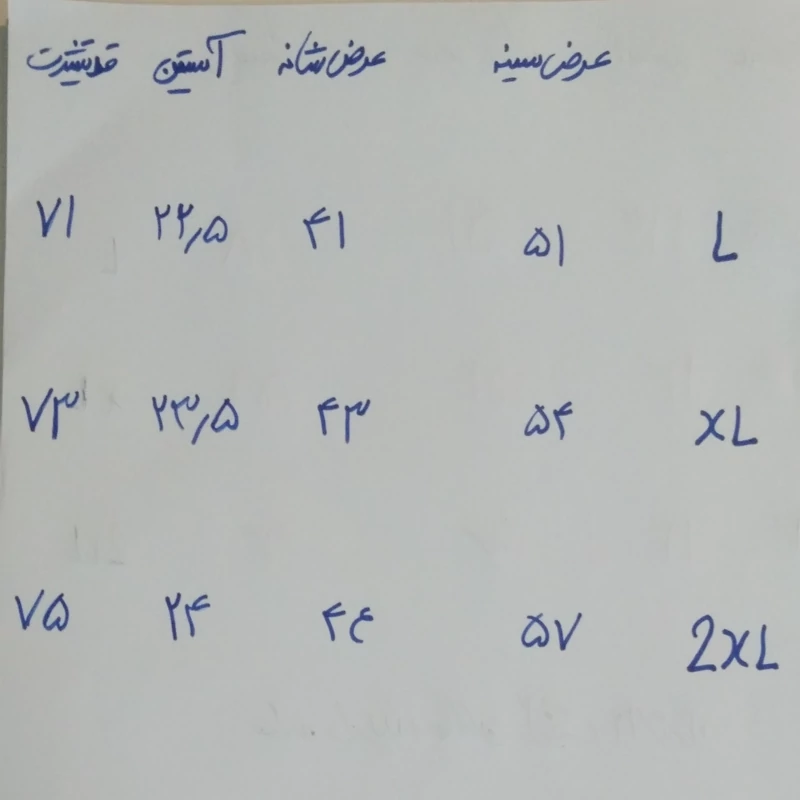 عرض سینه عرض شانه آستین قد تیشرت
L ۵۱ ۴۱ ۲۲٫۵ ۷۱
XL ۵۴ ۴۳ ۲۳٫۵ ۷۳
2XL ۵۷ ۴۴ ۲۴ ۷۵